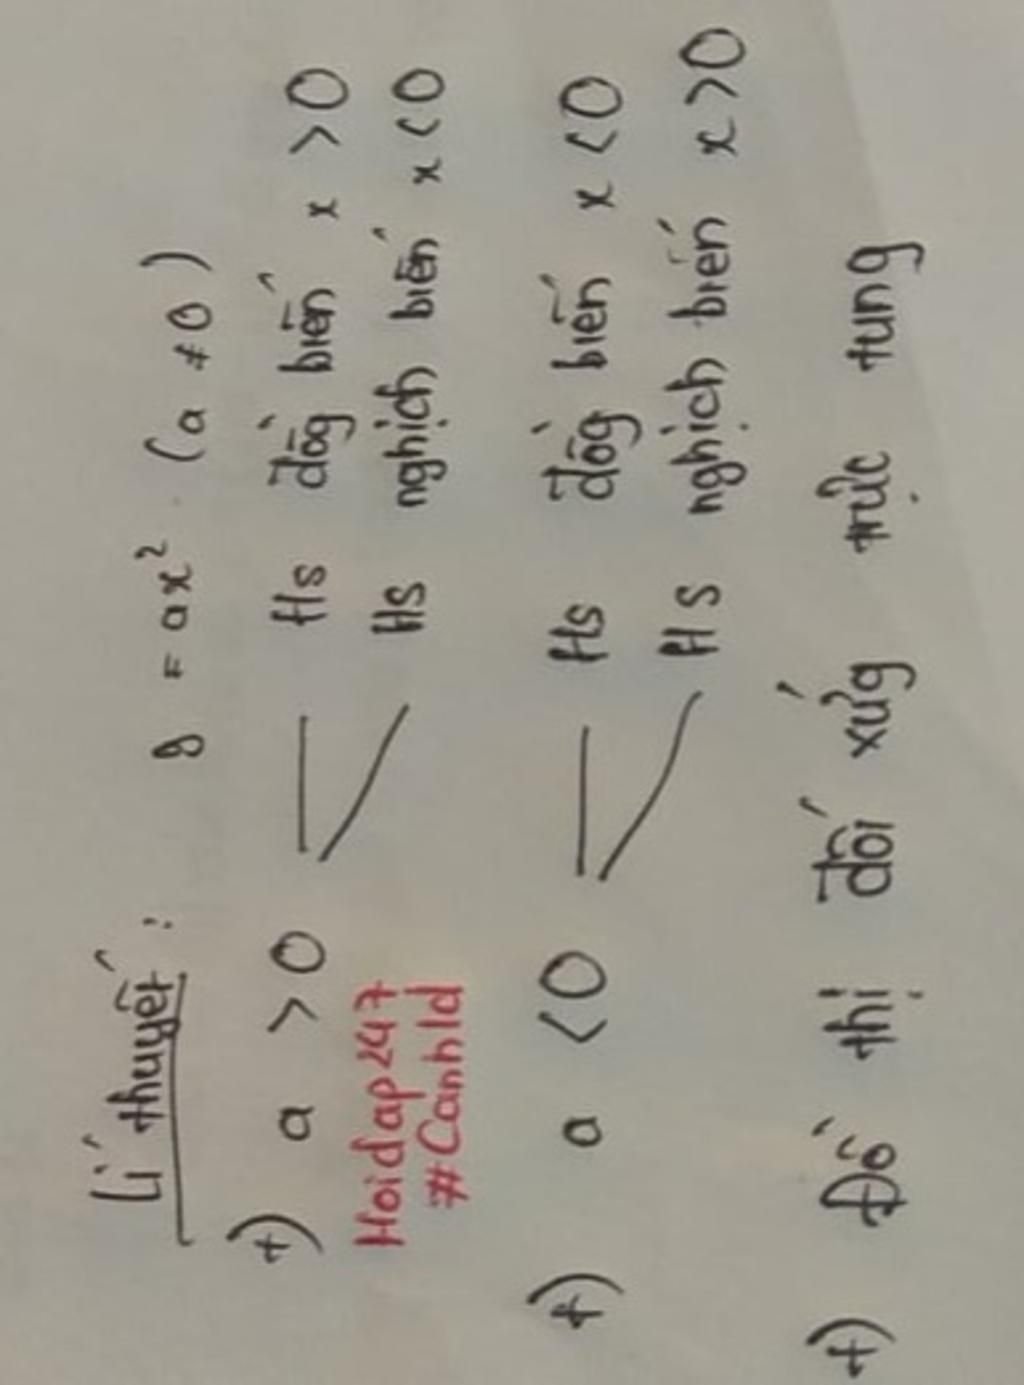 Lí thuyết: y = ax² (a ≠ 0)
+) a > 0 Hs đồg biến x > 0
Hs nghịch biến x < 0
Hoidap247
#Canhld
+) a < 0 Hs đồg biến x < 0
Hs nghịch biến x > 0
+) Đồ thị đối xứg trục tung